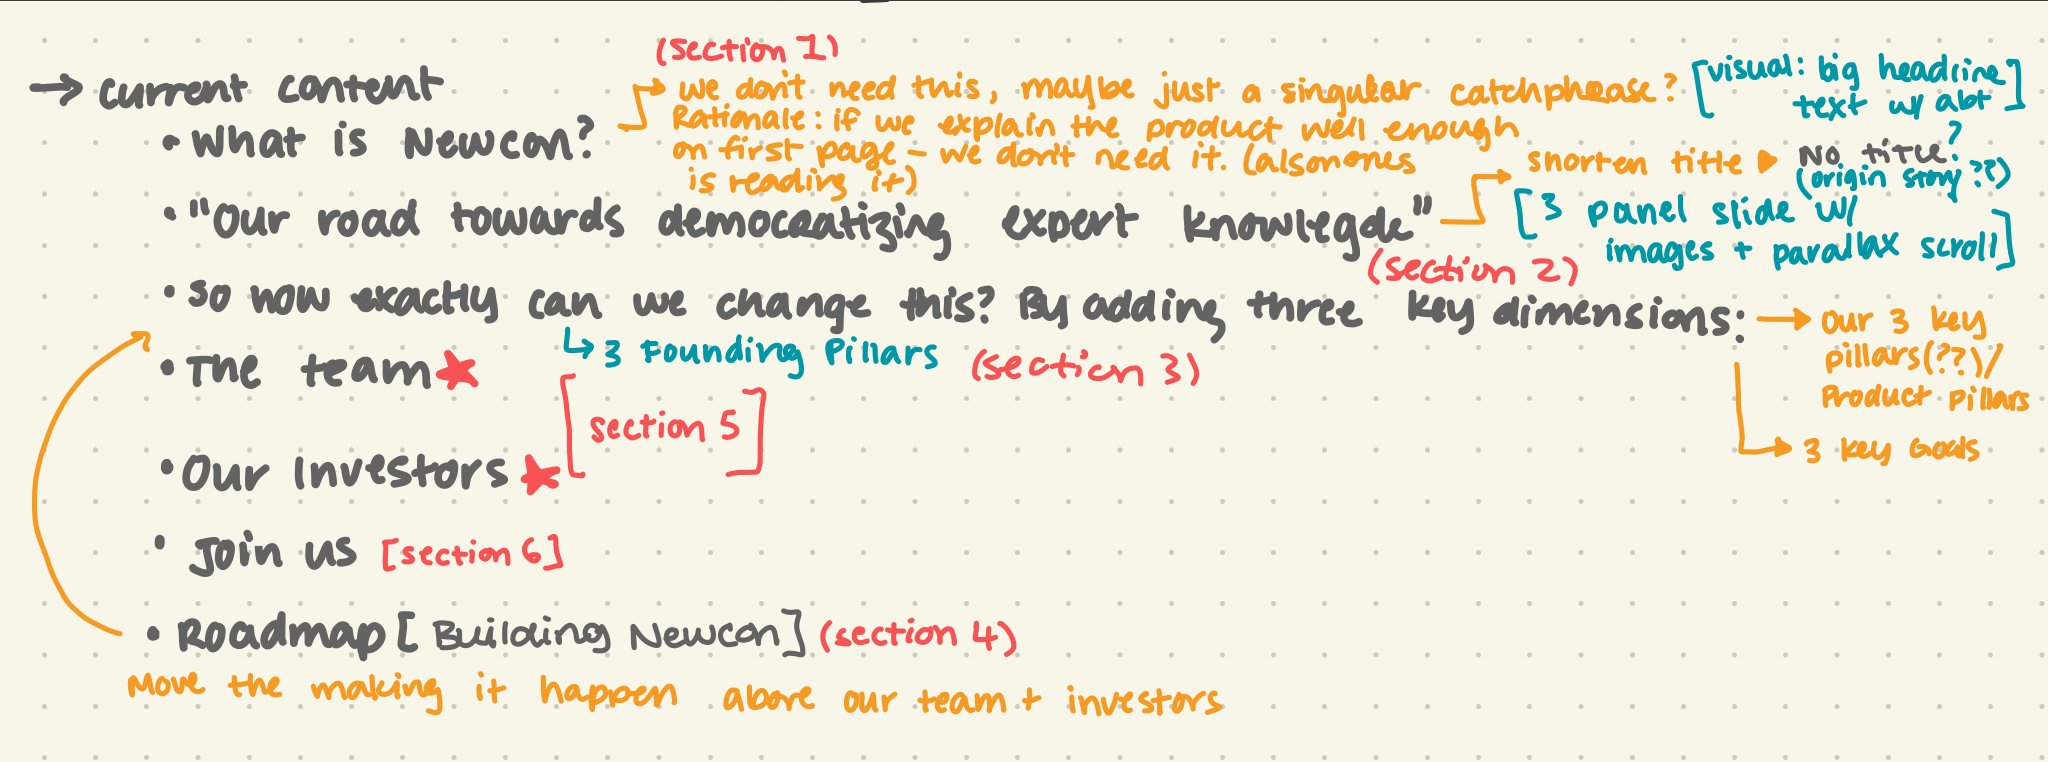 (section 1)
→ current content
• What is Newcon?
→ we don't need this, maybe just a singular catchphrase?
Rationale: if we explain the product well enough
on first page – we don't need it. (also no one's
is reading it)
[visual: big headline
text w/ abt]
• "Our road towards democratizing expert knowlegde"
→ shorten title ▸ No title?
(origin story??)
[3 panel slide w/
images + parallax scroll]
(section 2)
• So how exactly can we change this? By adding three key dimensions:
→ 3 Founding Pillars (section 3)
→ our 3 key
pillars(??)/
Product pillars
→ 3 key Goals
• The team ★
[section 5]
• Our Investors ★
• Join us [section 6]
• Roadmap [Building Newcon] (section 4)
Move the making it happen above our team + investors